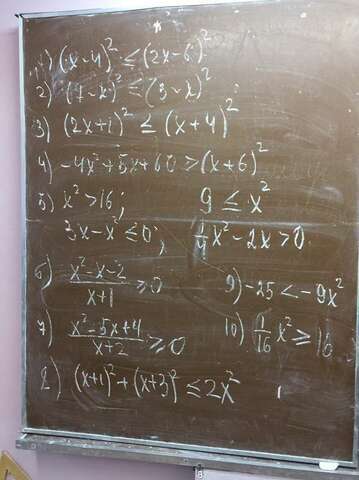 1) (x-4)² ≤ (2x-6)²
2) (7-x)² ≤ (3-x)²
3) (2x+1)² ≤ (x+4)²
4) -4x²+5x+60 > (x+6)²
5) x² > 16; 9 ≤ x²
3x-x² ≤ 0; 1/4 x² - 2x > 0.
6) x²-x-2 / x+1 ≥ 0 9) -25 < -9x²
7) x²-5x+4 / x+2 ≥ 0 10) 1/16 x² ≥ 16
8) (x+1)² + (x+3)² ≤ 2x²